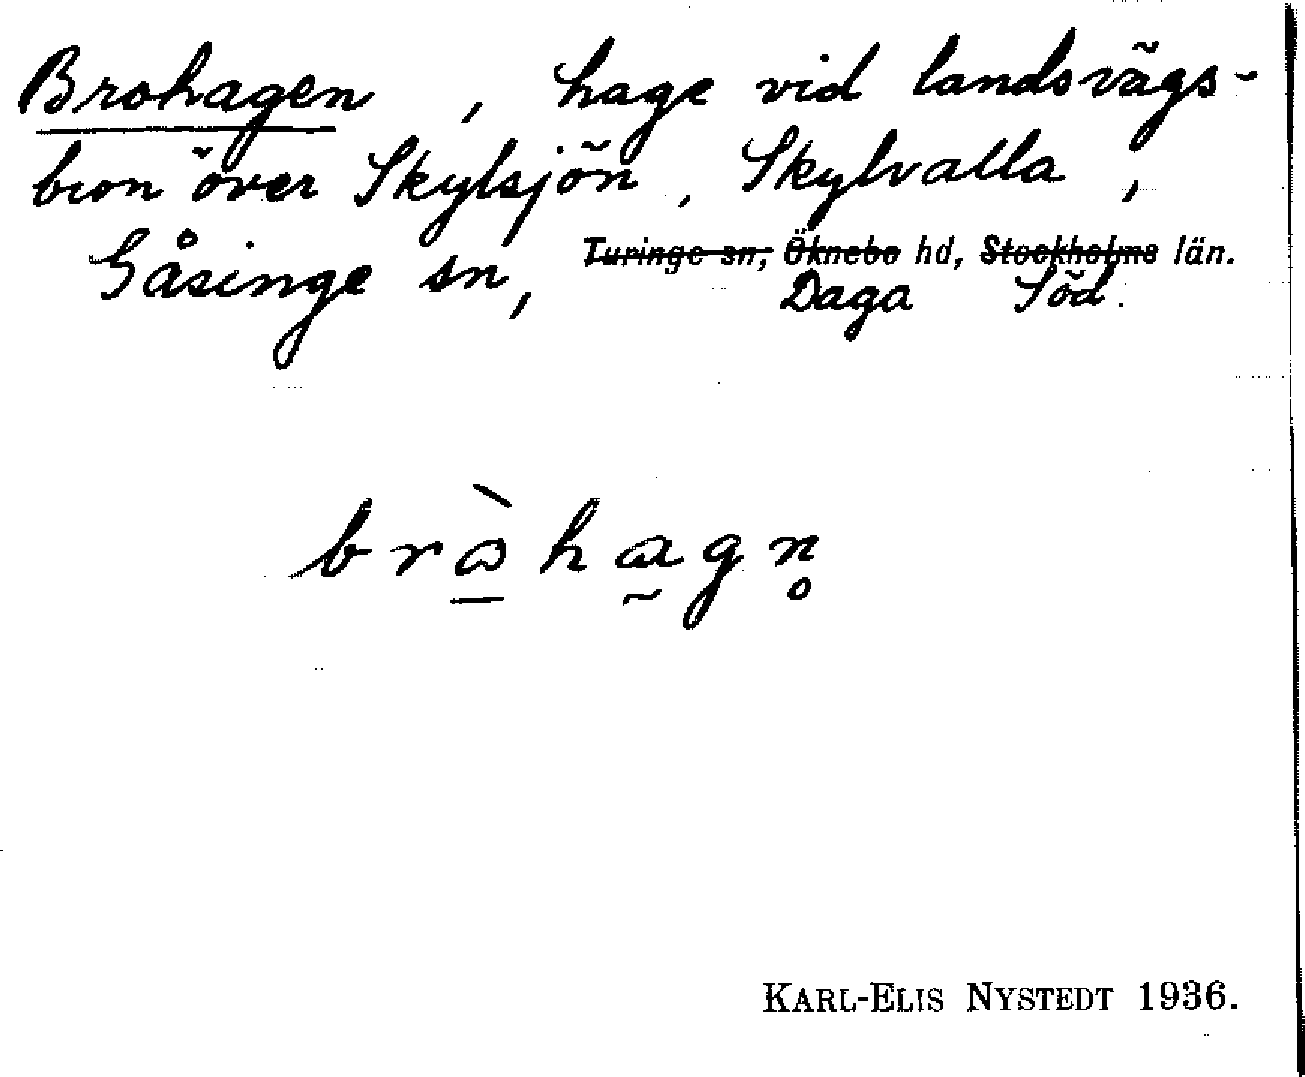 Brohagen, hage vid landsvägs-
bron över Skylsjön, Skylvalla,
Gåsinge sn, Turinge sn, Öknebo hd, Stockholms län.
Daga Söd.
bròhagn̥
KARL-ELIS NYSTEDT 1936.